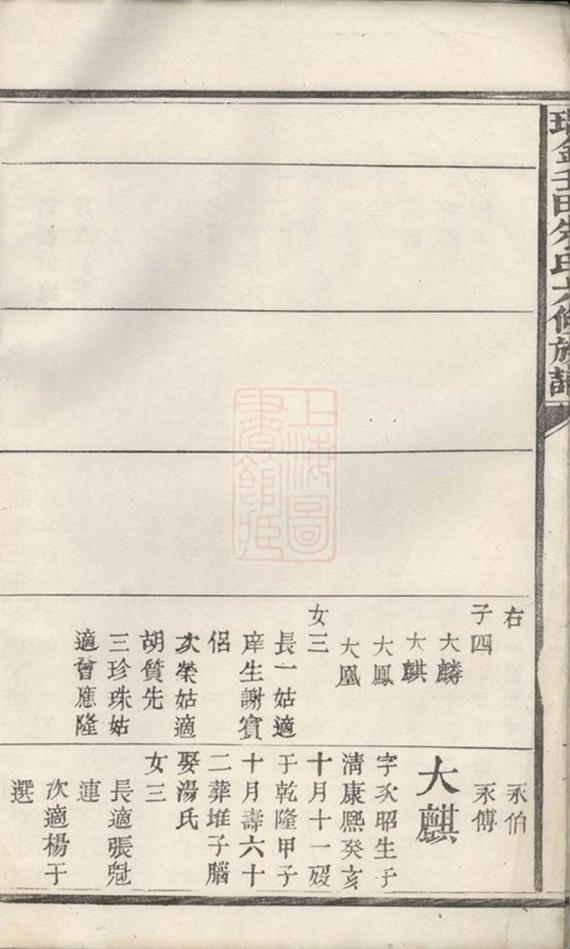 瑞金壬田朱氏六修族譜
右
子四
大麟
大麒
大鳳
大凰
女三
長一姑適
庠生謝賓
侶
次榮姑適
胡質先
三珍珠姑
適曾應隆
永伯
永傳
大麒
字次昭生于
清康熙癸亥
十月十一歿
于乾隆甲子
十月壽六十
二葬堆子腦
娶湯氏
女三
長適張
連
次適楊于
選
上海圖
書館藏